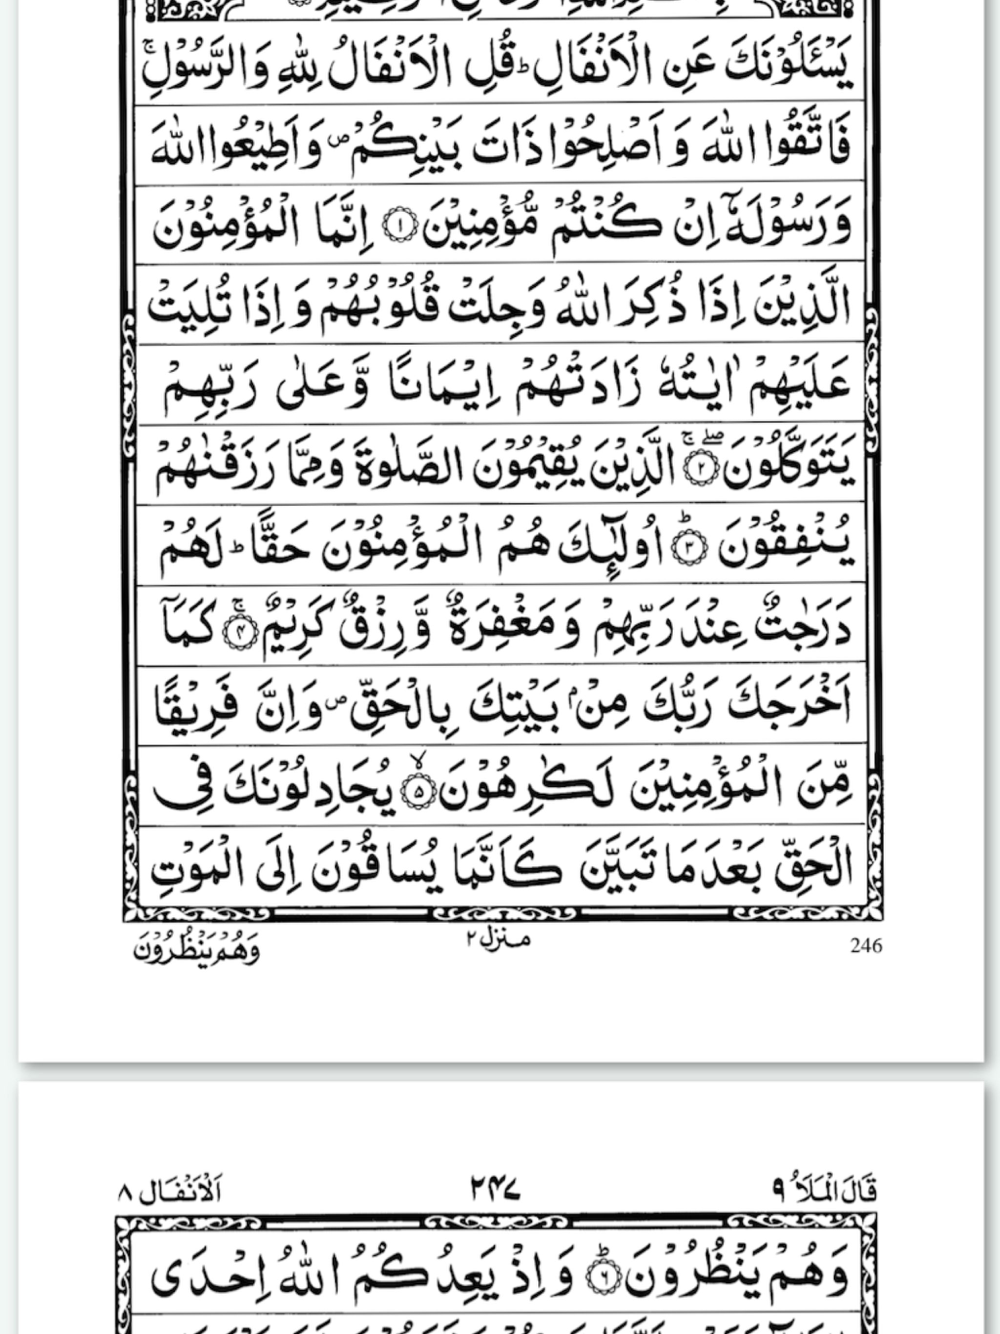 يَسْـَٔلُوْنَكَ عَنِ الْاَنْفَالِ ؕ قُلِ الْاَنْفَالُ لِلّٰهِ وَالرَّسُوْلِ ۚ
فَاتَّقُوا اللّٰهَ وَ اَصْلِحُوْا ذَاتَ بَيْنِكُمْ ۪ وَ اَطِيْعُوا اللّٰهَ
وَ رَسُوْلَهٗۤ اِنْ كُنْتُمْ مُّؤْمِنِيْنَ ۝۱ اِنَّمَا الْمُؤْمِنُوْنَ
الَّذِيْنَ اِذَا ذُكِرَ اللّٰهُ وَجِلَتْ قُلُوْبُهُمْ وَ اِذَا تُلِيَتْ
عَلَيْهِمْ اٰيٰتُهٗ زَادَتْهُمْ اِيْمَانًا وَّ عَلٰى رَبِّهِمْ
يَتَوَكَّلُوْنَ ۝۲ۖۚ الَّذِيْنَ يُقِيْمُوْنَ الصَّلٰوةَ وَ مِمَّا رَزَقْنٰهُمْ
يُنْفِقُوْنَ ۝۳ؕ اُولٰٓئِكَ هُمُ الْمُؤْمِنُوْنَ حَقًّا ؕ لَهُمْ
دَرَجٰتٌ عِنْدَ رَبِّهِمْ وَ مَغْفِرَةٌ وَّ رِزْقٌ كَرِيْمٌ ۝۴ۚ كَمَاۤ
اَخْرَجَكَ رَبُّكَ مِنْۢ بَيْتِكَ بِالْحَقِّ ۪ وَ اِنَّ فَرِيْقًا
مِّنَ الْمُؤْمِنِيْنَ لَكٰرِهُوْنَ ۝۵ۙ يُجَادِلُوْنَكَ فِي
الْحَقِّ بَعْدَ مَا تَبَيَّنَ كَاَنَّمَا يُسَاقُوْنَ اِلَى الْمَوْتِ
وَهُمْ يَنْظُرُوْنَ منزل ۲ 246
قَالَ الْمَلَاُ ۹ ۲۴۷ اَلْاَنْفَال ۸
وَ هُمْ يَنْظُرُوْنَ ۝۶ؕ وَ اِذْ يَعِدُكُمُ اللّٰهُ اِحْدَى